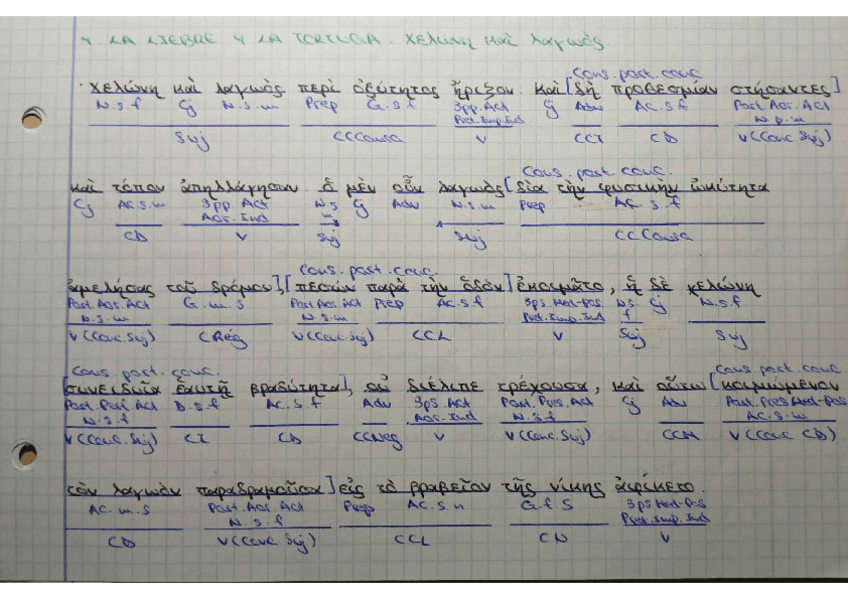 4. LA LIEBRE Y LA TORTUGA. Χελώνη καὶ λαγωός.
Cons. part. conc.
· Χελώνη καὶ λαγωὸς περὶ ὀξύτητος ἤριζον. Καὶ [δὴ προθεσμίαν στήσαντες]
N.s.f Cj N.s.m Prep G.s.f 3pp. Act Cj Adv Ac.s.f Part. Aor. Act
Pret. Imp. Ind N.p.m
Suj CCCausa V CCT CD V (Conc. Suj)
Cons. part. conc.
καὶ τόπον ἀπηλλάγησαν. ὁ μὲν οὖν λαγωὸς [διὰ τὴν φυσικὴν ὠκύτητα
Cj Ac.s.m 3pp Act N.s Cj Adv N.s.m Prep Ac.s.f
Aor. Ind m
CD V Suj Suj CCCausa
Cons. part. conc.
ἀμελήσας τοῦ δρόμου], [πεσὼν παρὰ τὴν ὁδὸν] ἐκοιμᾶτο, ἡ δὲ χελώνη
Part. Aor. Act G.m.s Part. Aor. Act Prep Ac.s.f 3ps. Med-Pas N.s. Cj N.s.f
N.s.m N.s.m Pret. Imp. Ind f
V (Conc. Suj) CRég V (Conc. Suj) CCL V Suj Suj
Cons. part. conc. Cons. part. conc
[συνειδυῖα ἑαυτῇ βραδύτητα], οὐ διέλιπε τρέχουσα, καὶ οὕτω [κοιμώμενον
Part. Perf. Act D.s.f Ac.s.f Adv 3ps. Act Part. Pres. Act Cj Adv Part. Pres Med-Pas
N.s.f Aor. Ind N.s.f Ac.s.m
V (Conc. Suj) CI CD CCNeg V V (Conc. Suj) CCM V (Conc CD)
τὸν λαγωὸν παραδραμοῦσα] εἰς τὸ βραβεῖον τῆς νίκης ἀφίκετο.
Ac.m.s Part. Aor. Act Prep Ac.s.n G.f.s 3ps Med-Pas
N.s.f Pret. Imp. Ind
CD V (Conc. Suj) CCL CN V